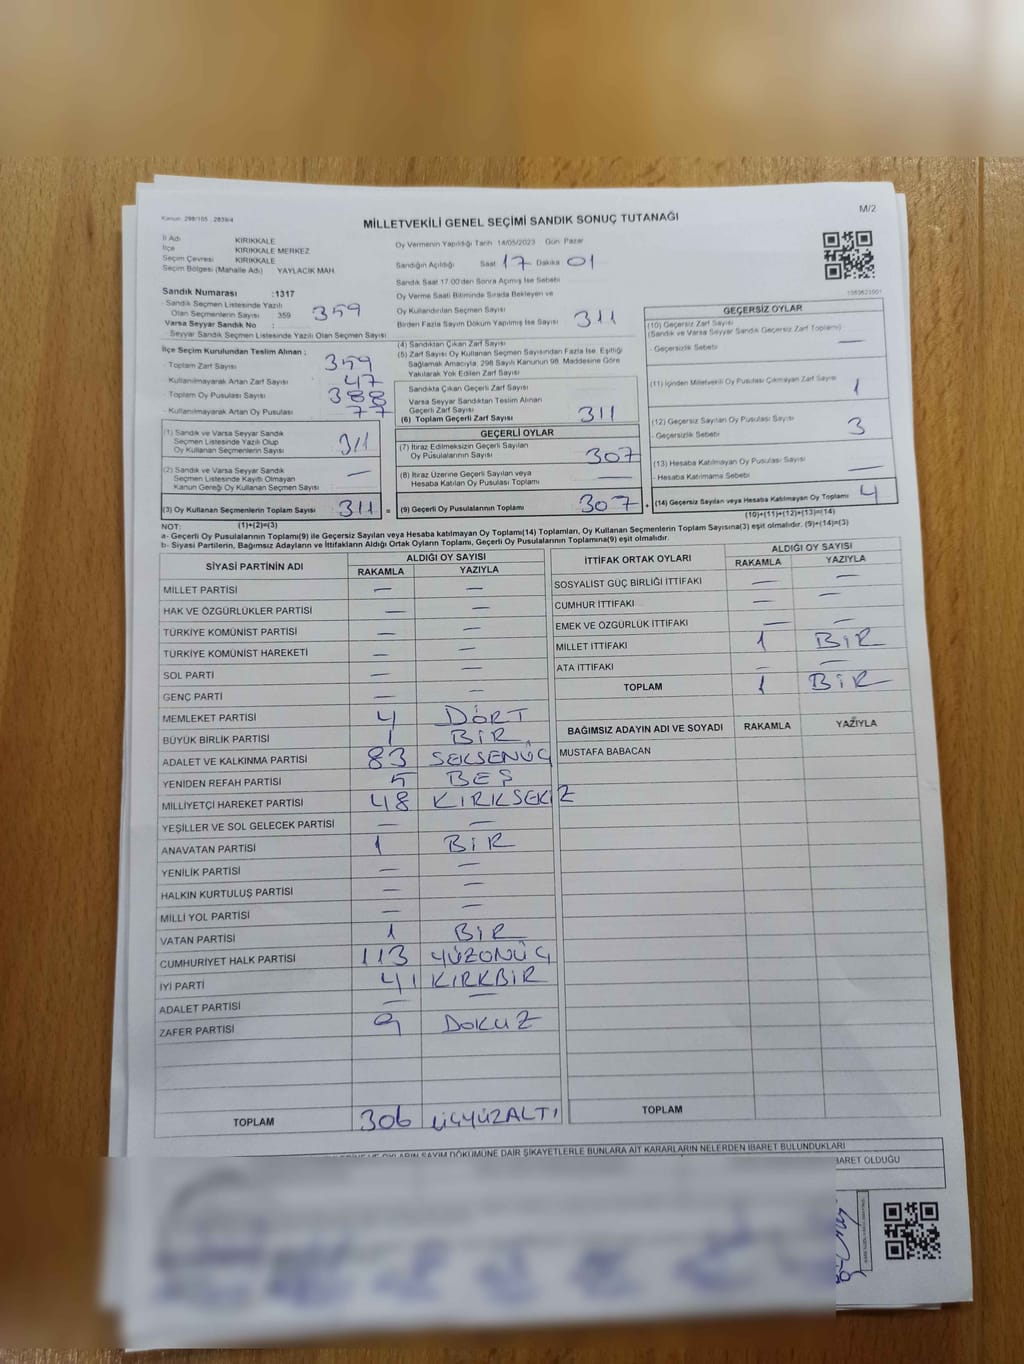 Kanun: 298/105 , 2839/4
M/2
MİLLETVEKİLİ GENEL SEÇİMİ SANDIK SONUÇ TUTANAĞI
İl Adı KIRIKKALE
İlçe KIRIKKALE MERKEZ
Seçim Çevresi KIRIKKALE
Seçim Bölgesi (Mahalle Adı) YAYLACIK MAH.
Oy Vermenin Yapıldığı Tarih 14/05/2023 Gün Pazar
Sandığın Açıldığı Saat 17 Dakika 01
Sandık Saat 17:00'den Sonra Açılmış İse Sebebi
Oy Verme Saati Bitiminde Sırada Bekleyen ve
Oy Kullandırılan Seçmen Sayısı
Birden Fazla Sayım Döküm Yapılmış İse Sayısı
Sandık Numarası :1317
Sandık Seçmen Listesinde Yazılı
Olan Seçmenlerin Sayısı 359 359
Varsa Seyyar Sandık No :
Seyyar Sandık Seçmen Listesinde Yazılı Olan Seçmen Sayısı
İlçe Seçim Kurulundan Teslim Alınan ;
Toplam Zarf Sayısı 359
Kullanılmayarak Artan Zarf Sayısı 47
Toplam Oy Pusulası Sayısı 388
Kullanılmayarak Artan Oy Pusulası 77
(1) Sandık ve Varsa Seyyar Sandık
Seçmen Listesinde Yazılı Olup
Oy Kullanan Seçmenlerin Sayısı 311
(2) Sandık ve Varsa Seyyar Sandık
Seçmen Listesinde Kayıtlı Olmayan
Kanun Gereği Oy Kullanan Seçmen Sayısı —
(3) Oy Kullanan Seçmenlerin Toplam Sayısı 311 =
(4) Sandıktan Çıkan Zarf Sayısı 311
(5) Zarf Sayısı Oy Kullanan Seçmen Sayısından Fazla İse, Eşitliği
Sağlamak Amacıyla, 298 Sayılı Kanunun 98. Maddesine Göre
Yakılarak Yok Edilen Zarf Sayısı
Sandıkta Çıkan Geçerli Zarf Sayısı
Varsa Seyyar Sandıktan Teslim Alınan
Geçerli Zarf Sayısı
(6) Toplam Geçerli Zarf Sayısı 311
GEÇERLİ OYLAR
(7) İtiraz Edilmeksizin Geçerli Sayılan
Oy Pusulalarının Sayısı 307
(8) İtiraz Üzerine Geçerli Sayılan veya
Hesaba Katılan Oy Pusulası Toplamı —
(9) Geçerli Oy Pusulalarının Toplamı 307 +
GEÇERSİZ OYLAR
(10) Geçersiz Zarf Sayısı
(Sandık ve Varsa Seyyar Sandık Geçersiz Zarf Toplamı)
- Geçersizlik Sebebi —
(11) İçinden Milletvekili Oy Pusulası Çıkmayan Zarf Sayısı 1
(12) Geçersiz Sayılan Oy Pusulası Sayısı 3
- Geçersizlik Sebebi
(13) Hesaba Katılmayan Oy Pusulası Sayısı —
- Hesaba Katılmama Sebebi
(14) Geçersiz Sayılan veya Hesaba Katılmayan Oy Toplamı 4
(10)+(11)+(12)+(13)=(14)
NOT: (1)+(2)=(3)
a- Geçerli Oy Pusulalarının Toplamı(9) ile Geçersiz Sayılan veya Hesaba katılmayan Oy Toplamı(14) Toplamları, Oy Kullanan Seçmenlerin Toplam Sayısına(3) eşit olmalıdır. (9)+(14)=(3)
b- Siyasi Partilerin, Bağımsız Adayların ve İttifakların Aldığı Ortak Oyların Toplamı, Geçerli Oy Pusulalarının Toplamına(9) eşit olmalıdır.
SİYASİ PARTİNİN ADI ALDIĞI OY SAYISI
RAKAMLA YAZIYLA
MİLLET PARTİSİ — —
HAK VE ÖZGÜRLÜKLER PARTİSİ — —
TÜRKİYE KOMÜNİST PARTİSİ — —
TÜRKİYE KOMÜNİST HAREKETİ — —
SOL PARTİ — —
GENÇ PARTİ — —
MEMLEKET PARTİSİ 4 DÖRT
BÜYÜK BİRLİK PARTİSİ 1 BİR
ADALET VE KALKINMA PARTİSİ 83 SEKSENÜÇ
YENİDEN REFAH PARTİSİ 5 BEŞ
MİLLİYETÇİ HAREKET PARTİSİ 48 KIRKSEKİZ
YEŞİLLER VE SOL GELECEK PARTİSİ — —
ANAVATAN PARTİSİ 1 BİR
YENİLİK PARTİSİ — —
HALKIN KURTULUŞ PARTİSİ — —
MİLLİ YOL PARTİSİ — —
VATAN PARTİSİ 1 BİR
CUMHURİYET HALK PARTİSİ 113 YÜZONÜÇ
İYİ PARTİ 41 KIRKBİR
ADALET PARTİSİ — —
ZAFER PARTİSİ 9 DOKUZ
TOPLAM 306 ÜÇYÜZALTI
İTTİFAK ORTAK OYLARI ALDIĞI OY SAYISI
RAKAMLA YAZIYLA
SOSYALİST GÜÇ BİRLİĞİ İTTİFAKI — —
CUMHUR İTTİFAKI — —
EMEK VE ÖZGÜRLÜK İTTİFAKI — —
MİLLET İTTİFAKI 1 BİR
ATA İTTİFAKI — —
TOPLAM 1 BİR
BAĞIMSIZ ADAYIN ADI VE SOYADI RAKAMLA YAZIYLA
MUSTAFA BABACAN
TOPLAM
OYLARIN SAYIM DÖKÜMÜNE DAİR ŞİKAYETLERLE BUNLARA AİT KARARLARIN NELERDEN İBARET BULUNDUKLARI
İBARET OLDUĞU